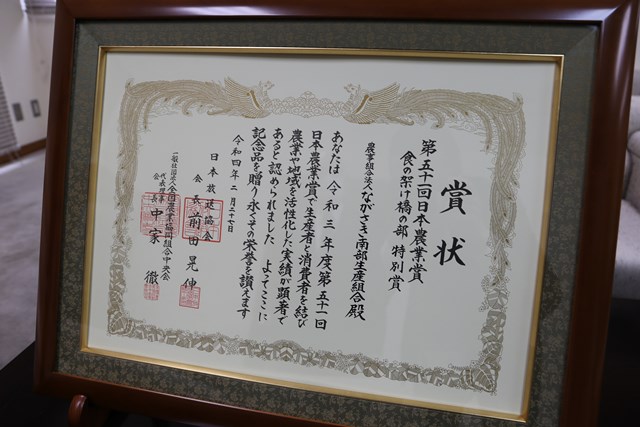 賞状
第五十一回日本農業賞
食の架け橋の部 特別賞
農事組合法人ながさき南部生産組合 殿
あなたは令和三年度第五十一回
日本農業賞で生産者と消費者を結び
農業や地域を活性化した実績が顕著で
あると認められました よってここに
記念品を贈り永くその栄誉を讃えます
令和四年二月二十七日
日本放送協会
会長 前田晃伸
一般社団法人全国農業協同組合中央会
代表理事会長 中家徹